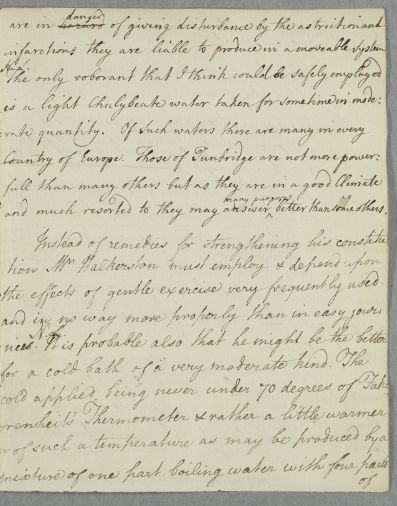 danger
are in hazard of giving disturbance by the astriction and
infarctions they are liable to produce in a moveable system
The only roborant that I think could be safely employed
is a light Chalybeate water taken for some time in mode:
rate quantity. Of such waters there are many in every
Country of Europe. Those of Tunbridge are not more power:
full than many others but as they are in a good Climate
many purposes
and much resorted to they may answer better than some others.
Instead of remedies for strengthening his constitu
tion Mr Halkerston must employ & depend upon
the effects of gentle exercise very frequently used
and in no way more properly than in easy jour
nies. It is probable also that he might be the better
for a cold bath of a very moderate kind. The
cold applied being never under 70 degrees of Fah
renheit's Thermometer & rather a little warmer
or of such a temperature as may be produced by a
mixture of one part boiling water with four parts
of